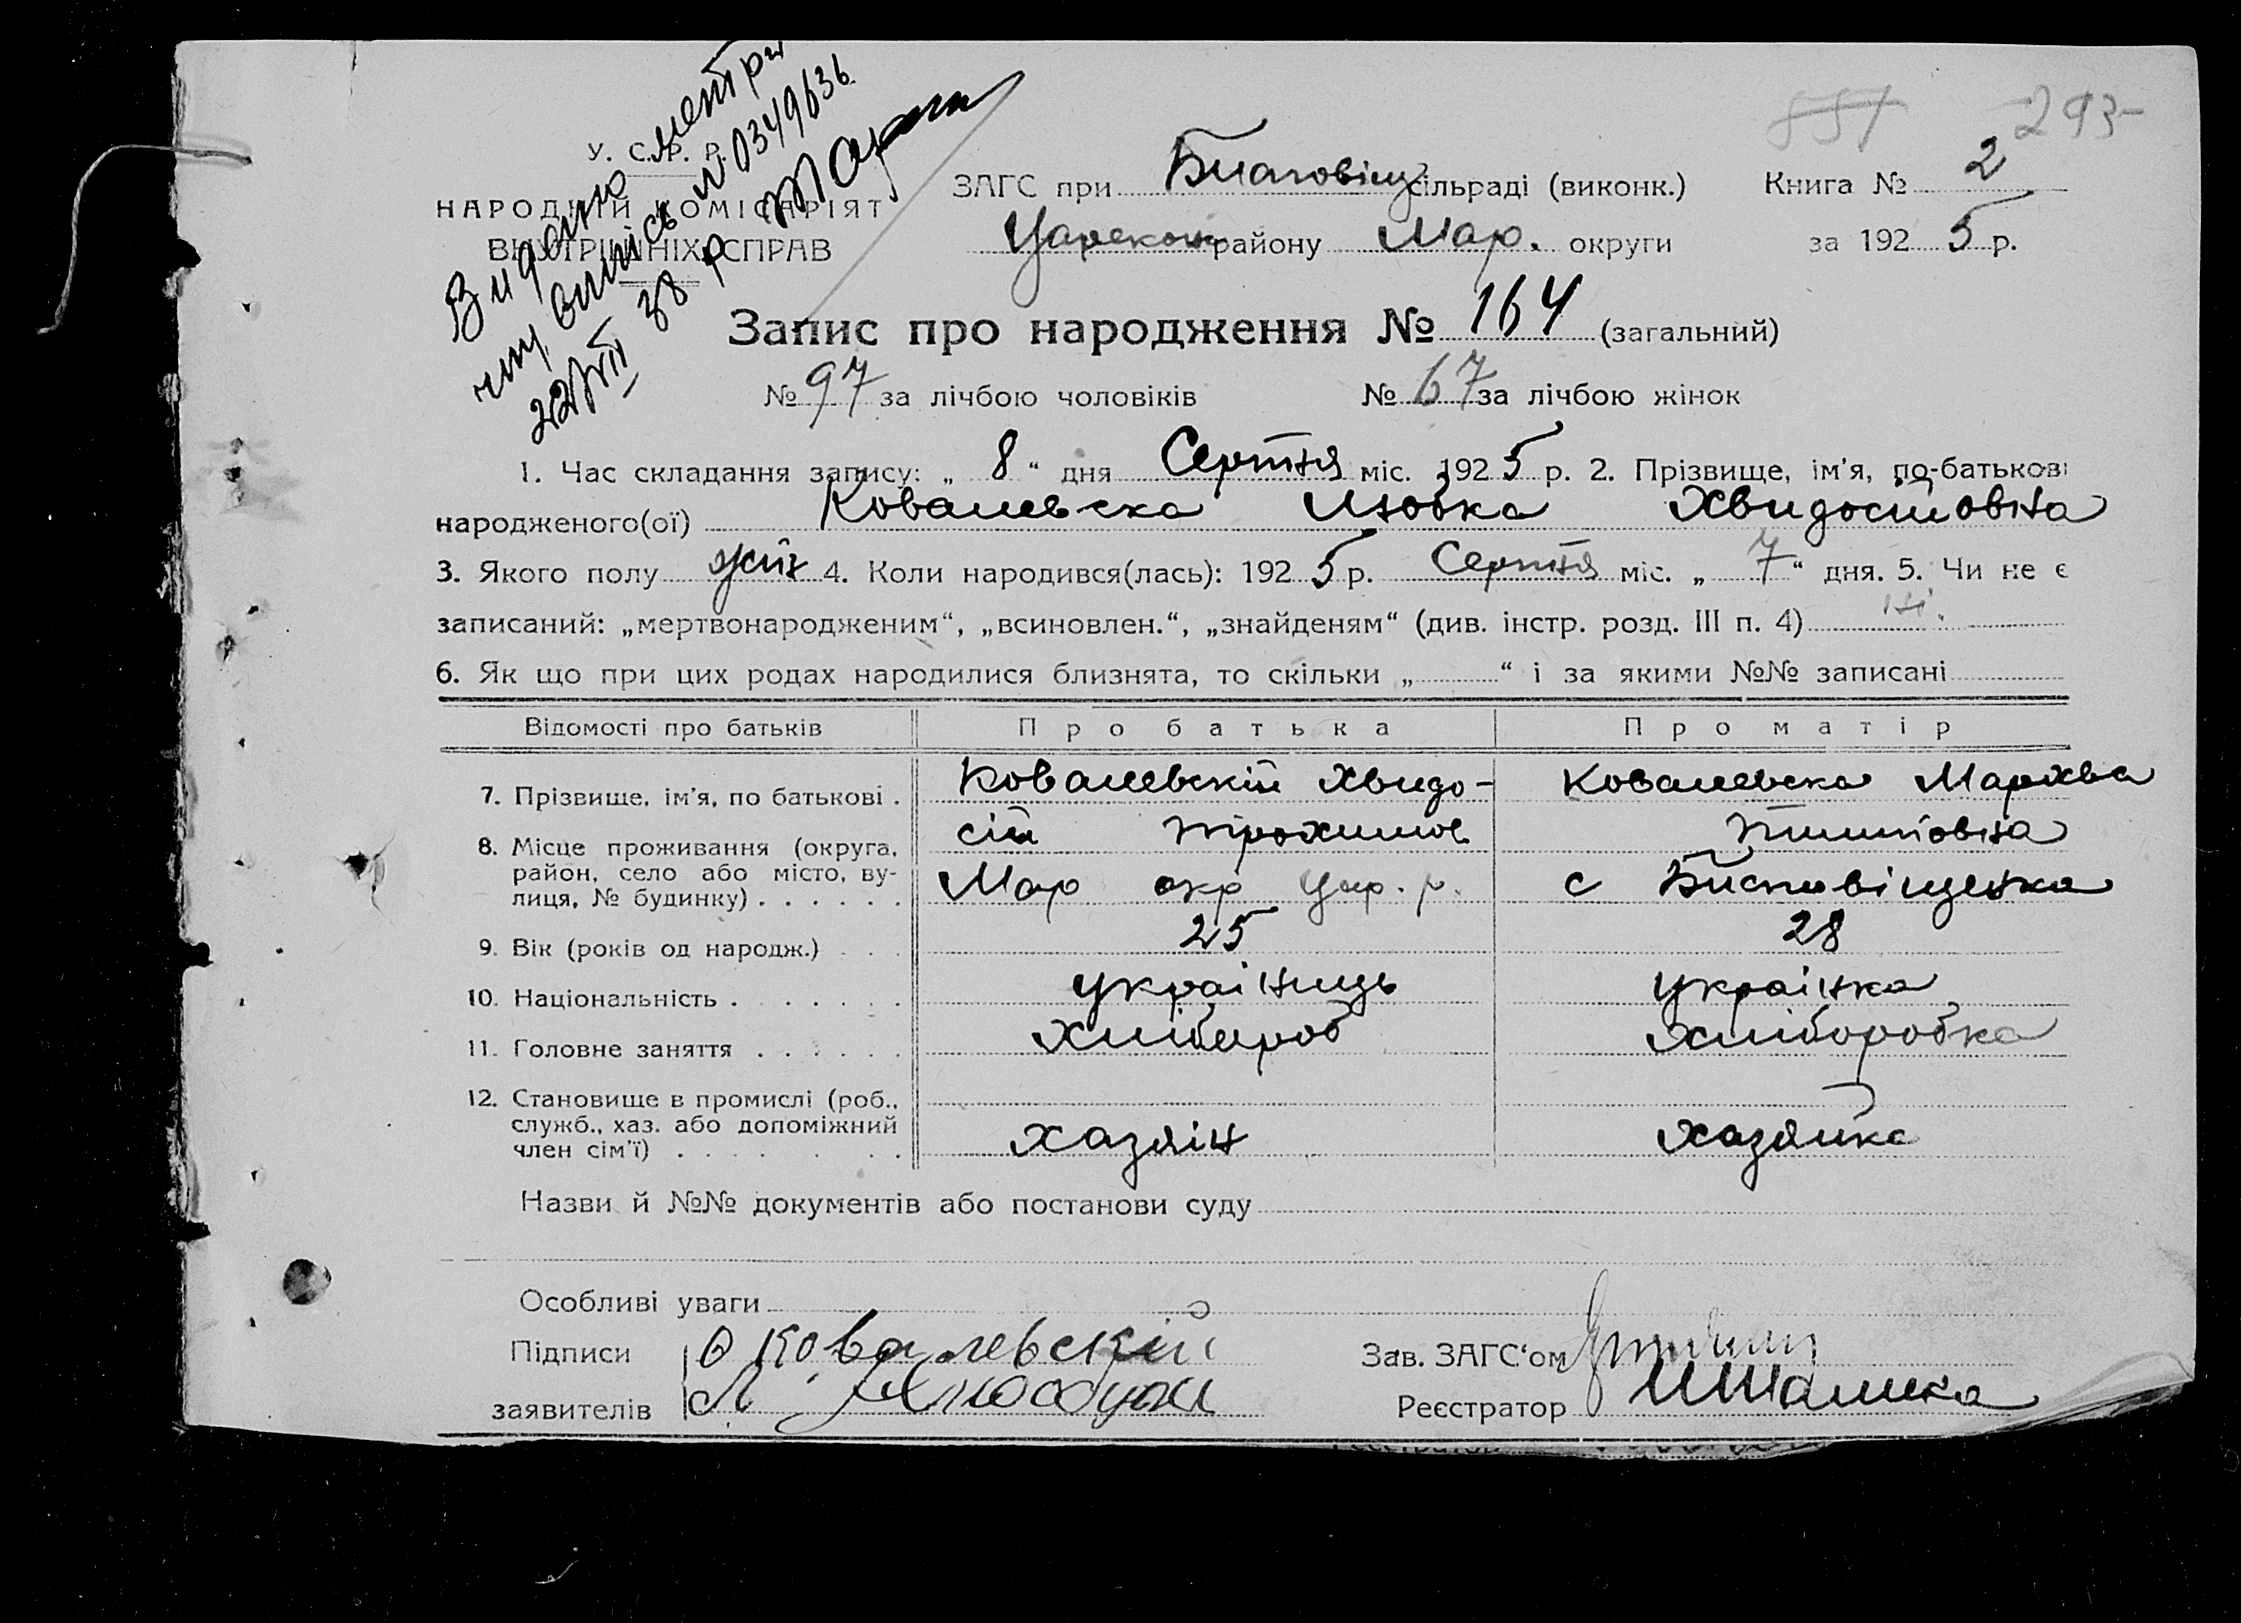 293
Видано метри
чну випісь № 0349636
22/VII 38 р
У. С. Р. Р.
НАРОДНІЙ КОМІСАРІЯТ
ВНУТРІШНІХ СПРАВ
ЗАГС при Благовіщ сільраді (виконк.) Книга № 2
Царекон району Мар. округи за 1925 р.
Запис про народження № 164 (загальний)
№ 97 за лічбою чоловіків № 67 за лічбою жінок
1. Час складання запису: „ 8 “ дня Серпня міс. 1925 р. 2. Прізвище, ім'я, по-батькові
народженого(ої) Ковалевска Любка Хвидостовна
3. Якого полу жін 4. Коли народився(лась): 1925 р. Серпня міс. „ 7 “ дня. 5. Чи не є
записаний: „мертвонародженим“, „всиновлен.“, „знайденям“ (див. інстр. розд. III п. 4) ні.
6. Як що при цих родах народилися близнята, то скільки „ “ і за якими №№ записані
Відомості про батьків Про батька Про матір
7. Прізвище, ім'я, по батькові . Ковалевскій Хвидо- Ковалевска Мархва
сій Трохимов Пилиповна
8. Місце проживання (округа, район, село або місто, ву-
лиця, № будинку) . . . . . . Мар окр Цар. р. с Благовіщенка
9. Вік (років од народж.) . . . 25 28
10. Національність . . . . . . . україниць українка
11. Головне заняття . . . . . . Хлібороб Хлiборобка
12. Становище в промислі (роб.,
служб., хаз. або допоміжний
член сім'ї) . . . . . . . . хазяін хазяйка
Назви й №№ документів або постанови суду
Особливі уваги
Підписи Ковалевский Зав. ЗАГС‘ом
заявителів Реєстратор